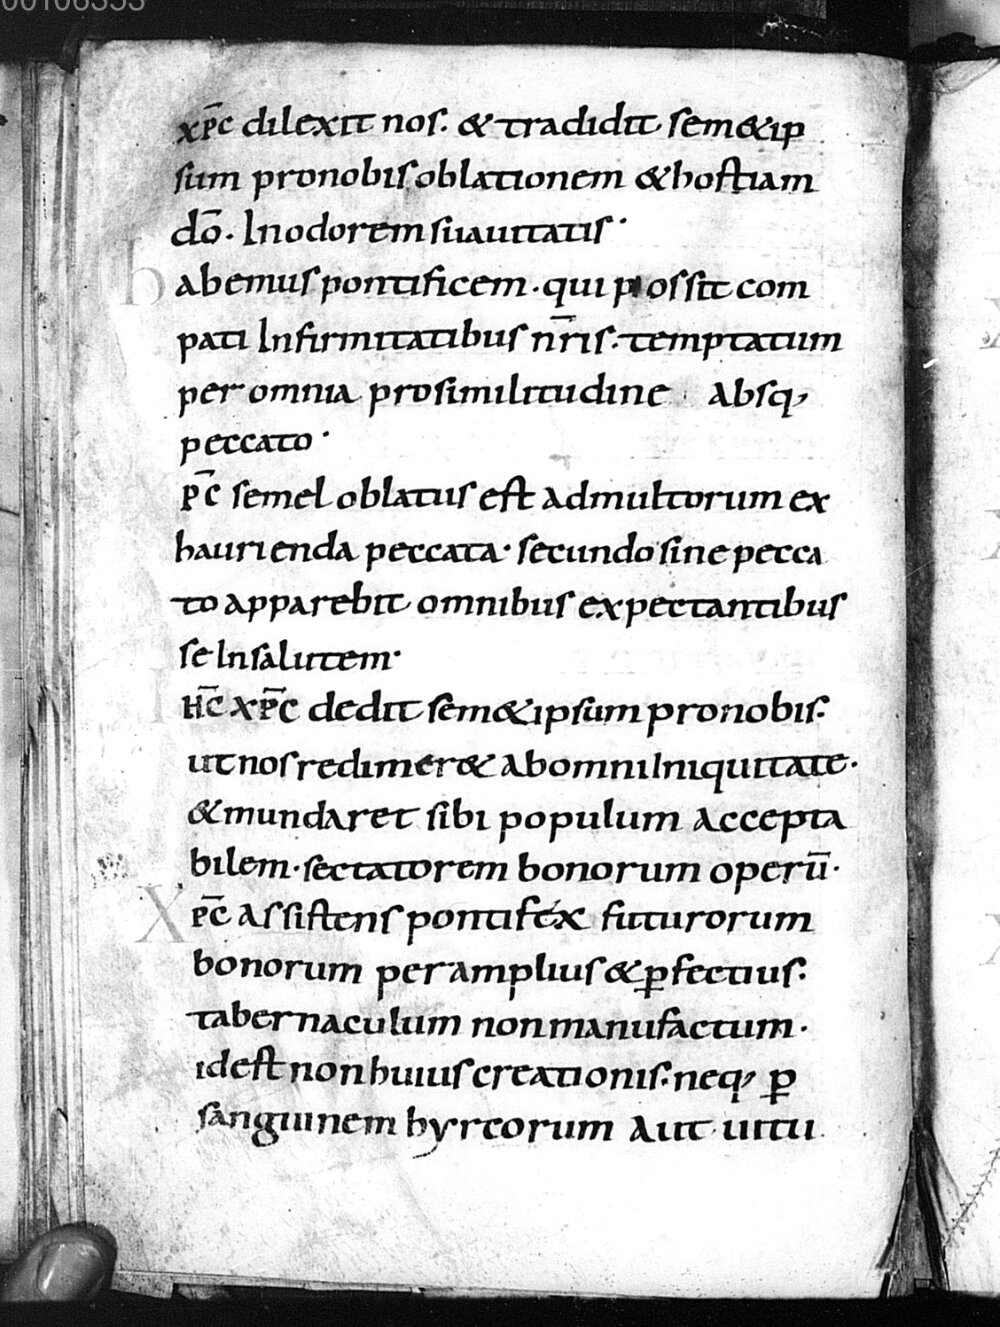 00106353
xp̅c dilexit nos. & tradidit sem&ip
sum pronobis oblationem & hostiam
do̅. Inodorem suauitatis·
Habemus pontificem. qui possit com
pati Infirmitatibus nr̅is. temptatum
per omnia prosimilitudine absq,
peccato·
p̅c semel oblatus est admultorum ex
haurienda peccata· secundo sine pecca
to apparebit omnibus expectantibus
se Insalutem·
Ihc̅ xp̅c dedit sem&ipsum pronobis.
ut nos redimer& abomni Iniquitate.
& mundaret sibi populum accepta
bilem· sectatorem bonorum operu̅·
Xp̅c assistens pontifex futurorum
bonorum per amplius & ꝑfectius.
tabernaculum nonmanufactum.
idest non huius creationis. neq, ꝑ
sanguinem hyrcorum aut uitu